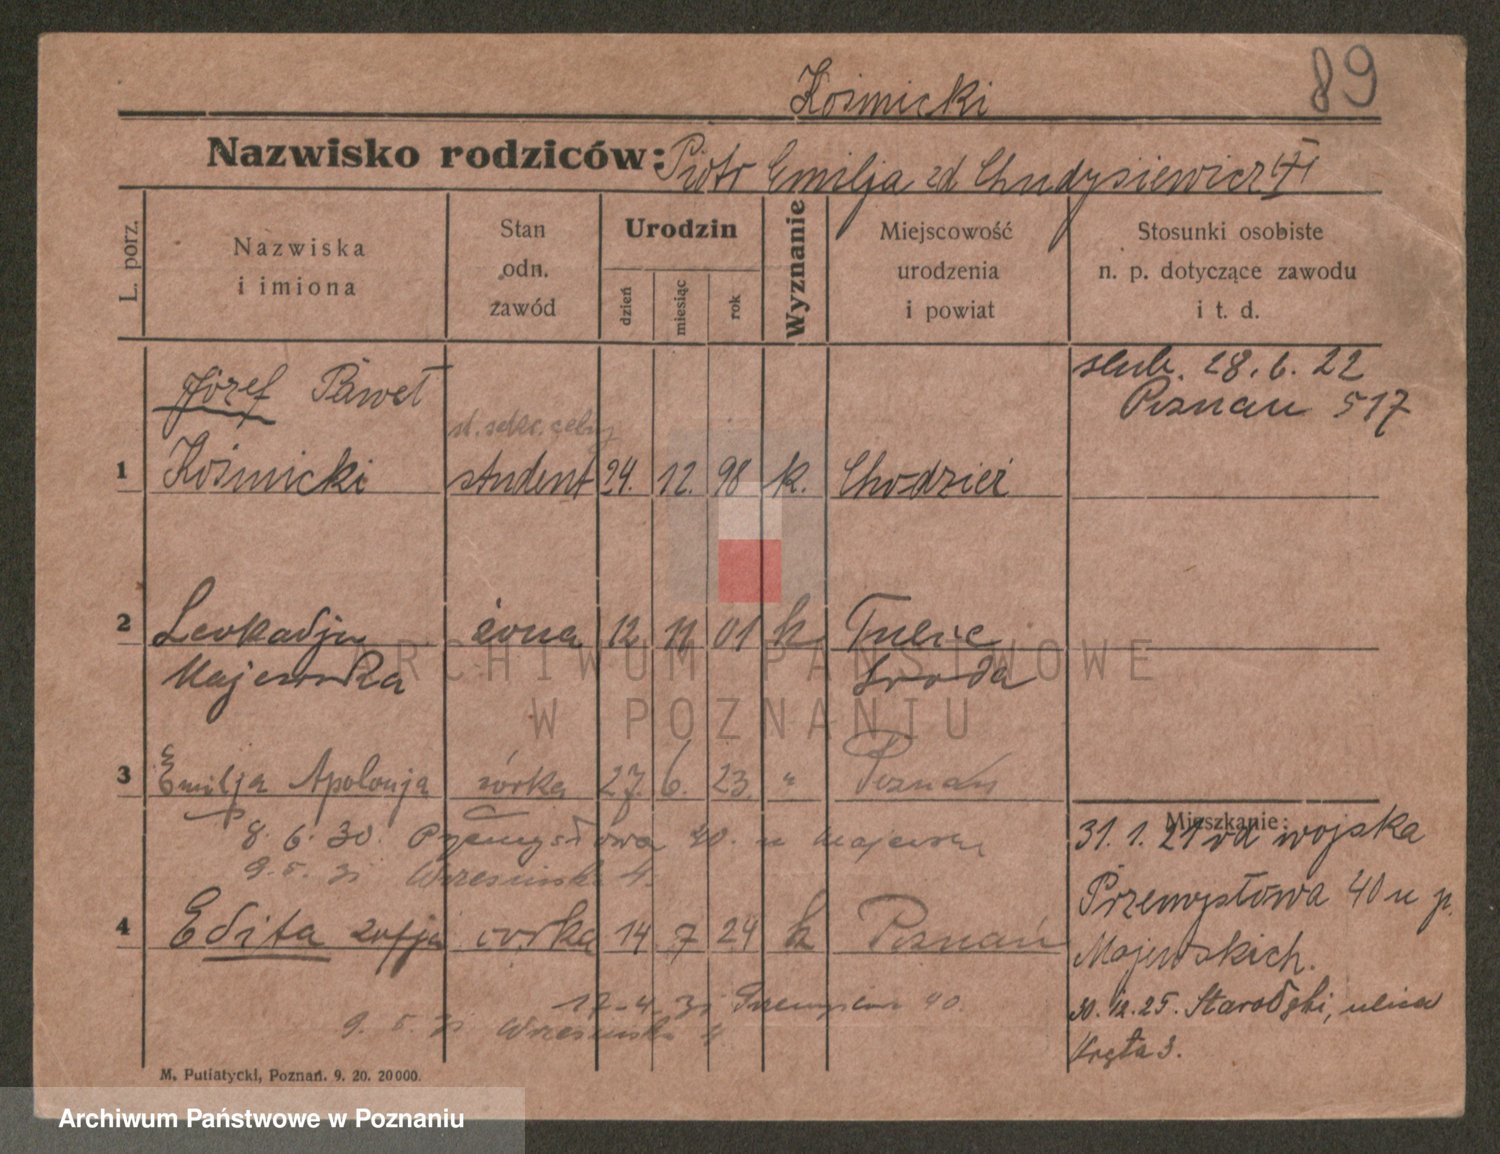 89
Kośmicki
Nazwisko rodziców: Piotr Emilja zd Chudysiewicz
L. porz.
Nazwiska i imiona
Stan odn. zawód
Urodzin
dzień
miesiąc
rok
Wyznanie
Miejscowość urodzenia i powiat
Stosunki osobiste n. p. dotyczące zawodu i t. d.
Józef Paweł
ślub. 28. 6. 22
Poznań 517
1 Kośmicki student 24. 12. 98 k. Chodzież
2 Leokadja żona 12 11 01 k Tulce
Majewska Środa
3 Emilja Apolonja córka 27. 6. 23. " Poznań
Mieszkanie:
8. 6. 30. Przemysłowa 40. u Majewsk
9. 5. 31 Wrzesińska 4.
31. 1. 21 od wojska
Przemysłowa 40 u p.
Majewskich.
4 Edita Zofja córka 14 7 24 k Poznań
17. 4. 31 Przemysłowa 40.
9. 5. 31 Wrzesińska 4
30. 12. 25. Starołęki, ulica
Kręta 3.
M. Putiatycki, Poznań. 9. 20. 20000.
ARCHIWUM PAŃSTWOWE
W POZNANIU
Archiwum Państwowe w Poznaniu